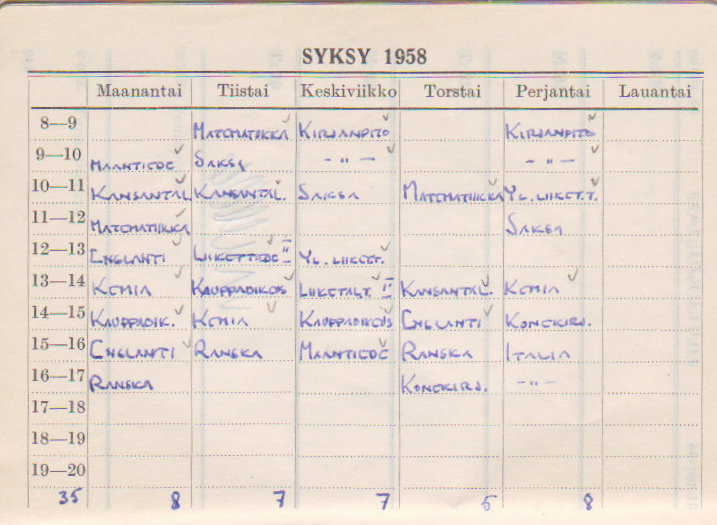 SYKSY 1958
Maanantai Tiistai Keskiviikko Torstai Perjantai Lauantai
8—9 MATEMATIIKKA KIRJANPITO KIRJANPITO
9—10 MAANTIEDE SAKSA — " — — " —
10—11 KANSANTAL. KANSANTAL. SAKSA MATEMATIIKKA YL. LIIKET.T.
11—12 MATEMATIIKKA SAKSA
12—13 ENGLANTI LIIKETTIEDE II YL. LIIKET.
13—14 KEMIA KAUPPAOIKEUS LIIKETALT. I KANSANTAL. KEMIA
14—15 KAUPPAOIK. KEMIA KAUPPAOIKEUS ENGLANTI KONEKIRJ.
15—16 ENGLANTI RANSKA MAANTIEDE RANSKA ITALIA
16—17 RANSKA KONEKIRJ. — " —
17—18
18—19
19—20
35 8 7 7 5 8